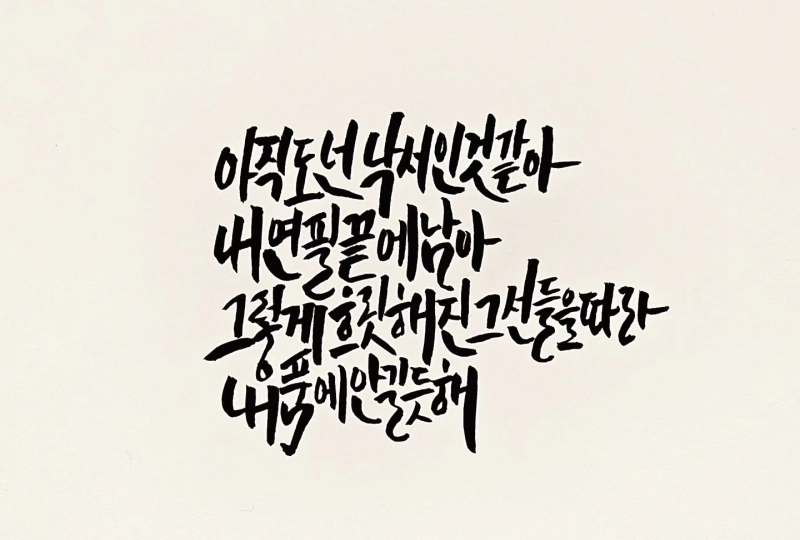 아직도 넌 낙서인 것 같아
내 연필 끝에 남아
그렇게 흐릿해진 그 선들을 따라
내 품에 안길 듯 해